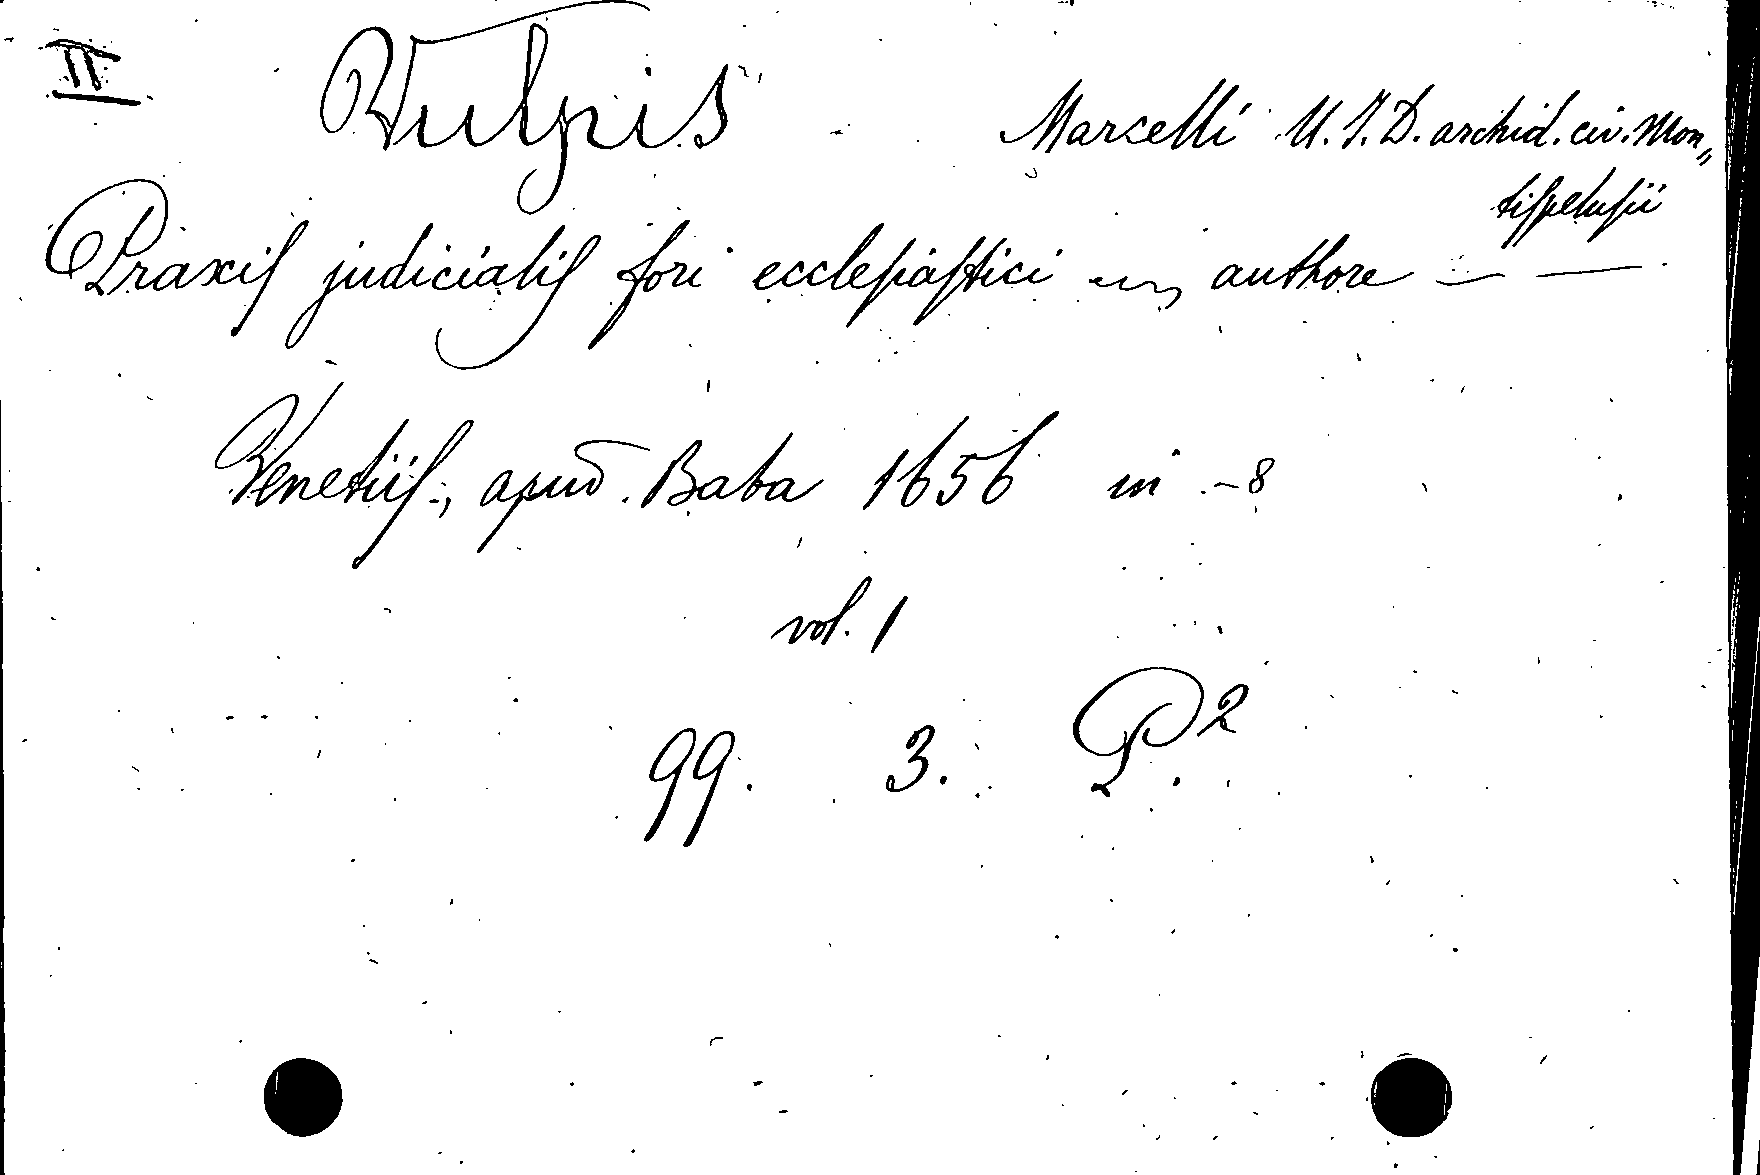 II
Vulpis Marcelli U.J.D. archid. civ. Mon„
tispelusii
Praxis judicialis fori ecclesiastici ~ authore — —
Venetiis, apud Baba 1656 in -8
vol. 1
99. 3. P².